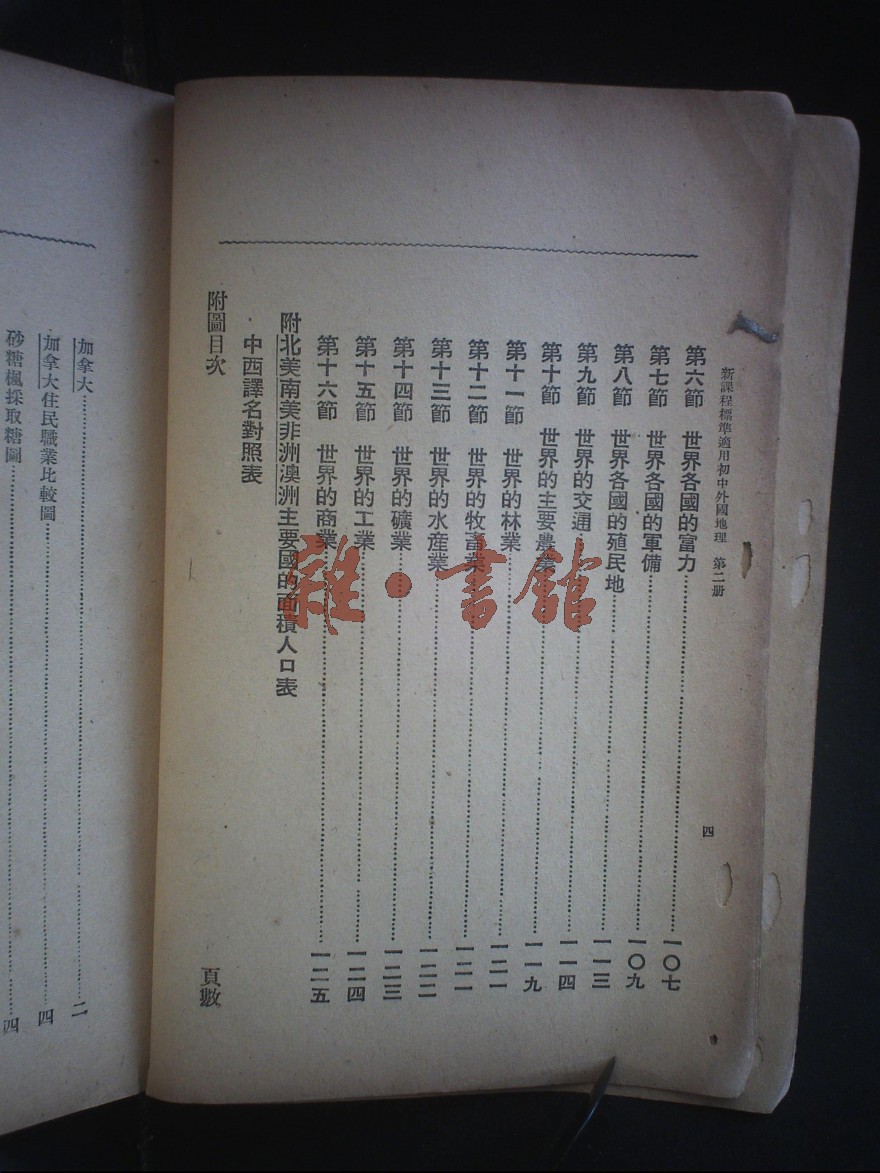 新課程標準適用初中外國地理　第二册
四
第六節　世界各國的富力……一〇七
第七節　世界各國的軍備……一〇九
第八節　世界各國的殖民地……一一三
第九節　世界的交通……一一四
第十節　世界的主要農業……一一九
第十一節　世界的林業……一二一
第十二節　世界的牧畜業……一二一
第十三節　世界的水産業……一二二
第十四節　世界的礦業……一二三
第十五節　世界的工業……一二四
第十六節　世界的商業……一二五
附北美南美非洲澳洲主要國的面積人口表
中西譯名對照表
附圖目次　頁數
加拿大……二
加拿大住民職業比較圖……四
砂糖楓採取糖圖……四
雜·書館